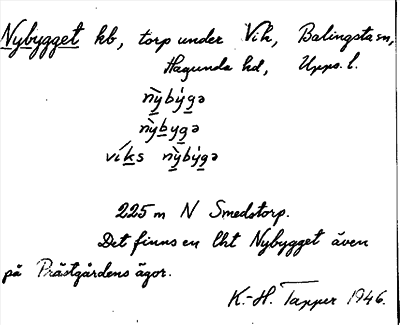 Nybygget kb, torp under Vik, Balingsta sn,
Hagunda hd, Upps. l.
nỳbýgə
nỳbygə
víks nỳbýgə
225 m N Smedstorp.
Det finns en lht Nybygget även
på Prästgårdens ägor.
K.-H. Tapper 1946.